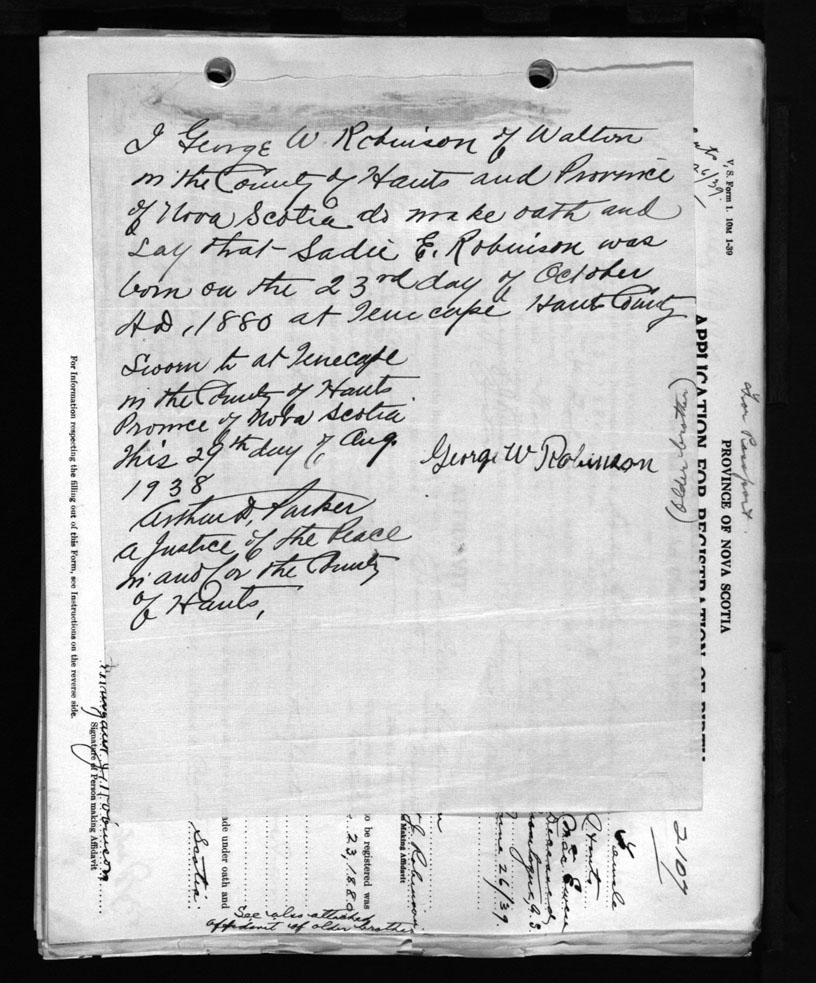 I George W. Robinson of Walton
in the County of Hants and Province
of Nova Scotia do make oath and
Say that Sadie E. Robinson was
born on the 23rd day of October
A.D, 1880 at Tenecape Hants County
Sworn to at Tenecape
in the County of Hants
Province of Nova Scotia
this 29th day of Aug.
1938
George W Robinson
Arthur D. Parker
a Justice of the Peace
in and for the County
of Hants,
V, S. Form 1. 10M 1-39
For Passport
PROVINCE OF NOVA SCOTIA
APPLICATION FOR REGISTRATION OF BIRTH
(older brother)
2107
Female
Hants
Mac Ewen
Deceased
June 26/39.
to be registered was
23, 1880
Robinson
Making Affidavit
ade under oath and
Scotia
See also attached
affidavit of older brother
Robinson
Signature of Person making Affidavit
For Information respecting the filling out of this Form, see Instructions on the reverse side.